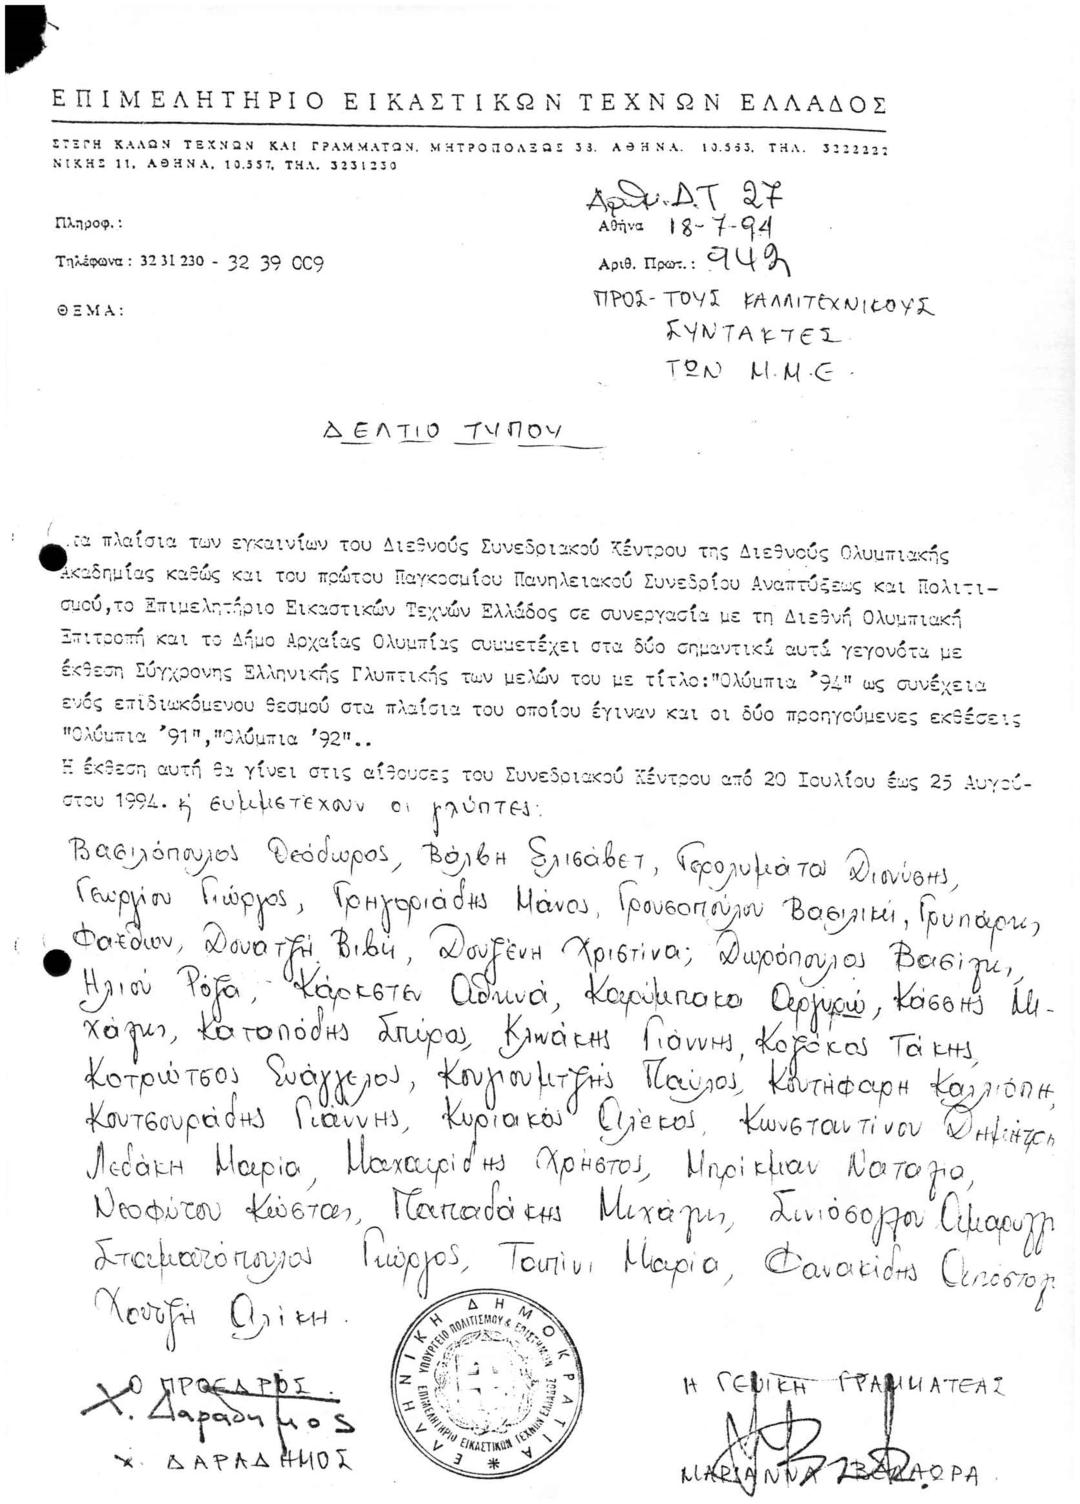 ΕΠΙΜΕΛΗΤΗΡΙΟ ΕΙΚΑΣΤΙΚΩΝ ΤΕΧΝΩΝ ΕΛΛΑΔΟΣ
ΣΤΕΓΗ ΚΑΛΩΝ ΤΕΧΝΩΝ ΚΑΙ ΓΡΑΜΜΑΤΩΝ, ΜΗΤΡΟΠΟΛΕΩΣ 38, ΑΘΗΝΑ, 10.563, ΤΗΛ. 3222222
ΝΙΚΗΣ 11, ΑΘΗΝΑ, 10.557, ΤΗΛ. 3231230
Αριθμ. Δ.Τ 27
Πληροφ.:
Αθήνα 18-7-94
Τηλέφωνα: 32 31 230 - 32 39 009
Αριθ. Πρωτ.: 942
ΘΕΜΑ:
ΠΡΟΣ-ΤΟΥΣ ΚΑΛΛΙΤΕΧΝΙΚΟΥΣ
ΣΥΝΤΑΚΤΕΣ
ΤΩΝ Μ.Μ.Ε.
ΔΕΛΤΙΟ ΤΥΠΟΥ
τα πλαίσια των εγκαινίων του Διεθνούς Συνεδριακού Κέντρου της Διεθνούς Ολυμπιακής
Ακαδημίας καθώς και του πρώτου Παγκοσμίου Πανηλειακού Συνεδρίου Αναπτύξεως και Πολιτι-
σμού,το Επιμελητήριο Εικαστικών Τεχνών Ελλάδος σε συνεργασία με τη Διεθνή Ολυμπιακή
Επιτροπή και το Δήμο Αρχαίας Ολυμπίας συμμετέχει στα δύο σημαντικά αυτά γεγονότα με
έκθεση Σύγχρονης Ελληνικής Γλυπτικής των μελών του με τίτλο:"Ολύμπια '94" ως συνέχεια
ενός επιδιωκόμενου θεσμού στα πλαίσια του οποίου έγιναν και οι δύο προηγούμενες εκθέσεις
"Ολύμπια '91","Ολύμπια '92"..
Η έκθεση αυτή θα γίνει στις αίθουσες του Συνεδριακού Κέντρου από 20 Ιουλίου έως 25 Αυγού-
στου 1994. κ' συμμετέχουν οι γλύπτες:
Βασιλόπουλος Θεόδωρος, Βόλβη Ελισάβετ, Γερολυμάτος Διονύσης,
Γεωργίου Γιώργος, Γρηγοριάδης Μάνος, Γρουσοπούλου Βασιλική, Γρυπάρης
Φαέδων, Δουατζή Βιβή, Δουζένη Χριστίνα; Δωρόπουλος Βασίλης,
Ηλιού Ρόζα, Κάρστεν Αθηνά, Καρύμπακα Αργυρώ, Κάσσης Μι-
χάλης, Καταπόδης Σπύρος, Κλινάκης Γιάννης, Κοζάκος Τάκης,
Κοτριώτσος Ευάγγελος, Κουγιουμτζής Παύλος, Κουτήφαρη Καλλιόπη,
Κουτσουράδης Γιάννης, Κυριακός Αλέκος, Κωνσταντίνου Δημήτρης
Λεδάκη Μαρία, Μαχαιρίδης Χρήστος, Μπρίκμαν Ναταλία,
Νεοφύτου Κώστας, Παπαδάκης Μιχάλης, Σινιόσογλου Αμαρυλλ
Σταματόπουλος Γιώργος, Ταπίνι Μαρία, Φανακίδης Απόστολ
Χατζή Αλίκη.
ΕΛΛΗΝΙΚΗ ΔΗΜΟΚΡΑΤΙΑ
ΥΠΟΥΡΓΕΙΟ ΠΟΛΙΤΙΣΜΟΥ & ΕΠΙΣΤΗΜΩΝ
ΕΠΙΜΕΛΗΤΗΡΙΟ ΕΙΚΑΣΤΙΚΩΝ ΤΕΧΝΩΝ ΕΛΛΑΔΟΣ
Ο ΠΡΟΕΔΡΟΣ
Χ. Δαραδήμος
Χ. ΔΑΡΑΔΗΜΟΣ
Η ΓΕΝΙΚΗ ΓΡΑΜΜΑΤΕΑΣ
ΜΑΡΙΑΝΝΑ